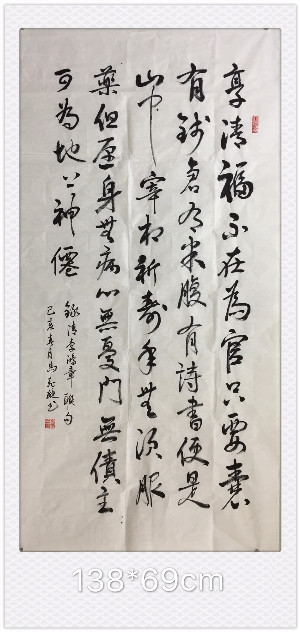 享清福不在為官只要囊
有錢倉有米腹有詩書便是
山中宰相祈壽年無須服
藥但愿身無病心無憂門無債主
可為地上神僊
錄清李鴻章聯句
己亥春月馬书
138*69cm